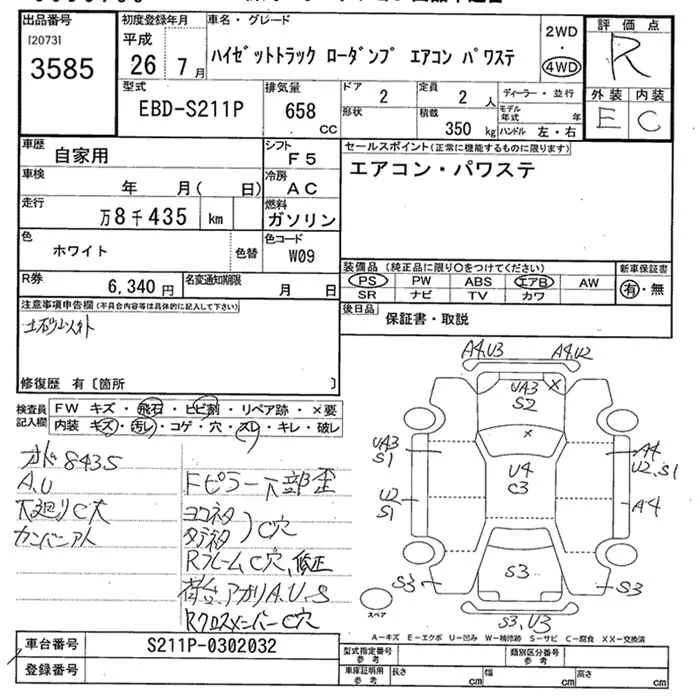 出品番号
[2073]
3585
初度登録年月
平成
26年7月
車名・グレード
ハイゼットトラック ローダンプ エアコン パワステ
2WD
・
4WD
評価点
R
外装 内装
E C
型式
EBD-S211P
排気量
658
CC
ドア
2
形状
定員
2人
積載
350kg
ディーラー・並行
モデル年式 年
ハンドル 左・右
車歴
自家用
シフト
F5
車検
年 月( 日)
冷房
AC
走行
万8千435 km
燃料
ガソリン
色
ホワイト
色替
色コード
W09
R券
6,340円
名変通知期限
月 日
セールスポイント(正常に機能するものに限ります)
エアコン・パワステ
装備品(純正品に限り○をつけてください)
PS PW ABS エアB AW
SR ナビ TV カワ
新車保証書
有・無
後日品
保証書・取説
注意事項申告欄(不具合内容等は具体的に記入して下さい)
土砂山以外
修復歴 有〔箇所 〕
検査員
記入欄
FW キズ・飛石・ヒビ割・リペア跡・×要
内装 キズ・汚レ・コゲ・穴・スレ・キレ・破レ
オド8435
A.U
下廻りC大
カンバン入
Fピラー下部歪
ヨコネタ
タテネタ
)C穴
RフレームC穴、修正
荷台、アオリA.U.S
RクロスメンバーC穴
A4.U3
A4.U2
UA3
S2
×
×
UA3
S1
U4
C3
A4
U2.S1
U2
S1
A4
S3
S3
S3
S3.U3
スペア
A-キズ E-エクボ U-凹み W-補修跡 S-サビ C-腐食 XX-交換済
車台番号
S211P-0302032
登録番号
型式指定番号
参考
類別区分番号
参考
車庫証明用
参考
長さ cm
幅 cm
高さ cm